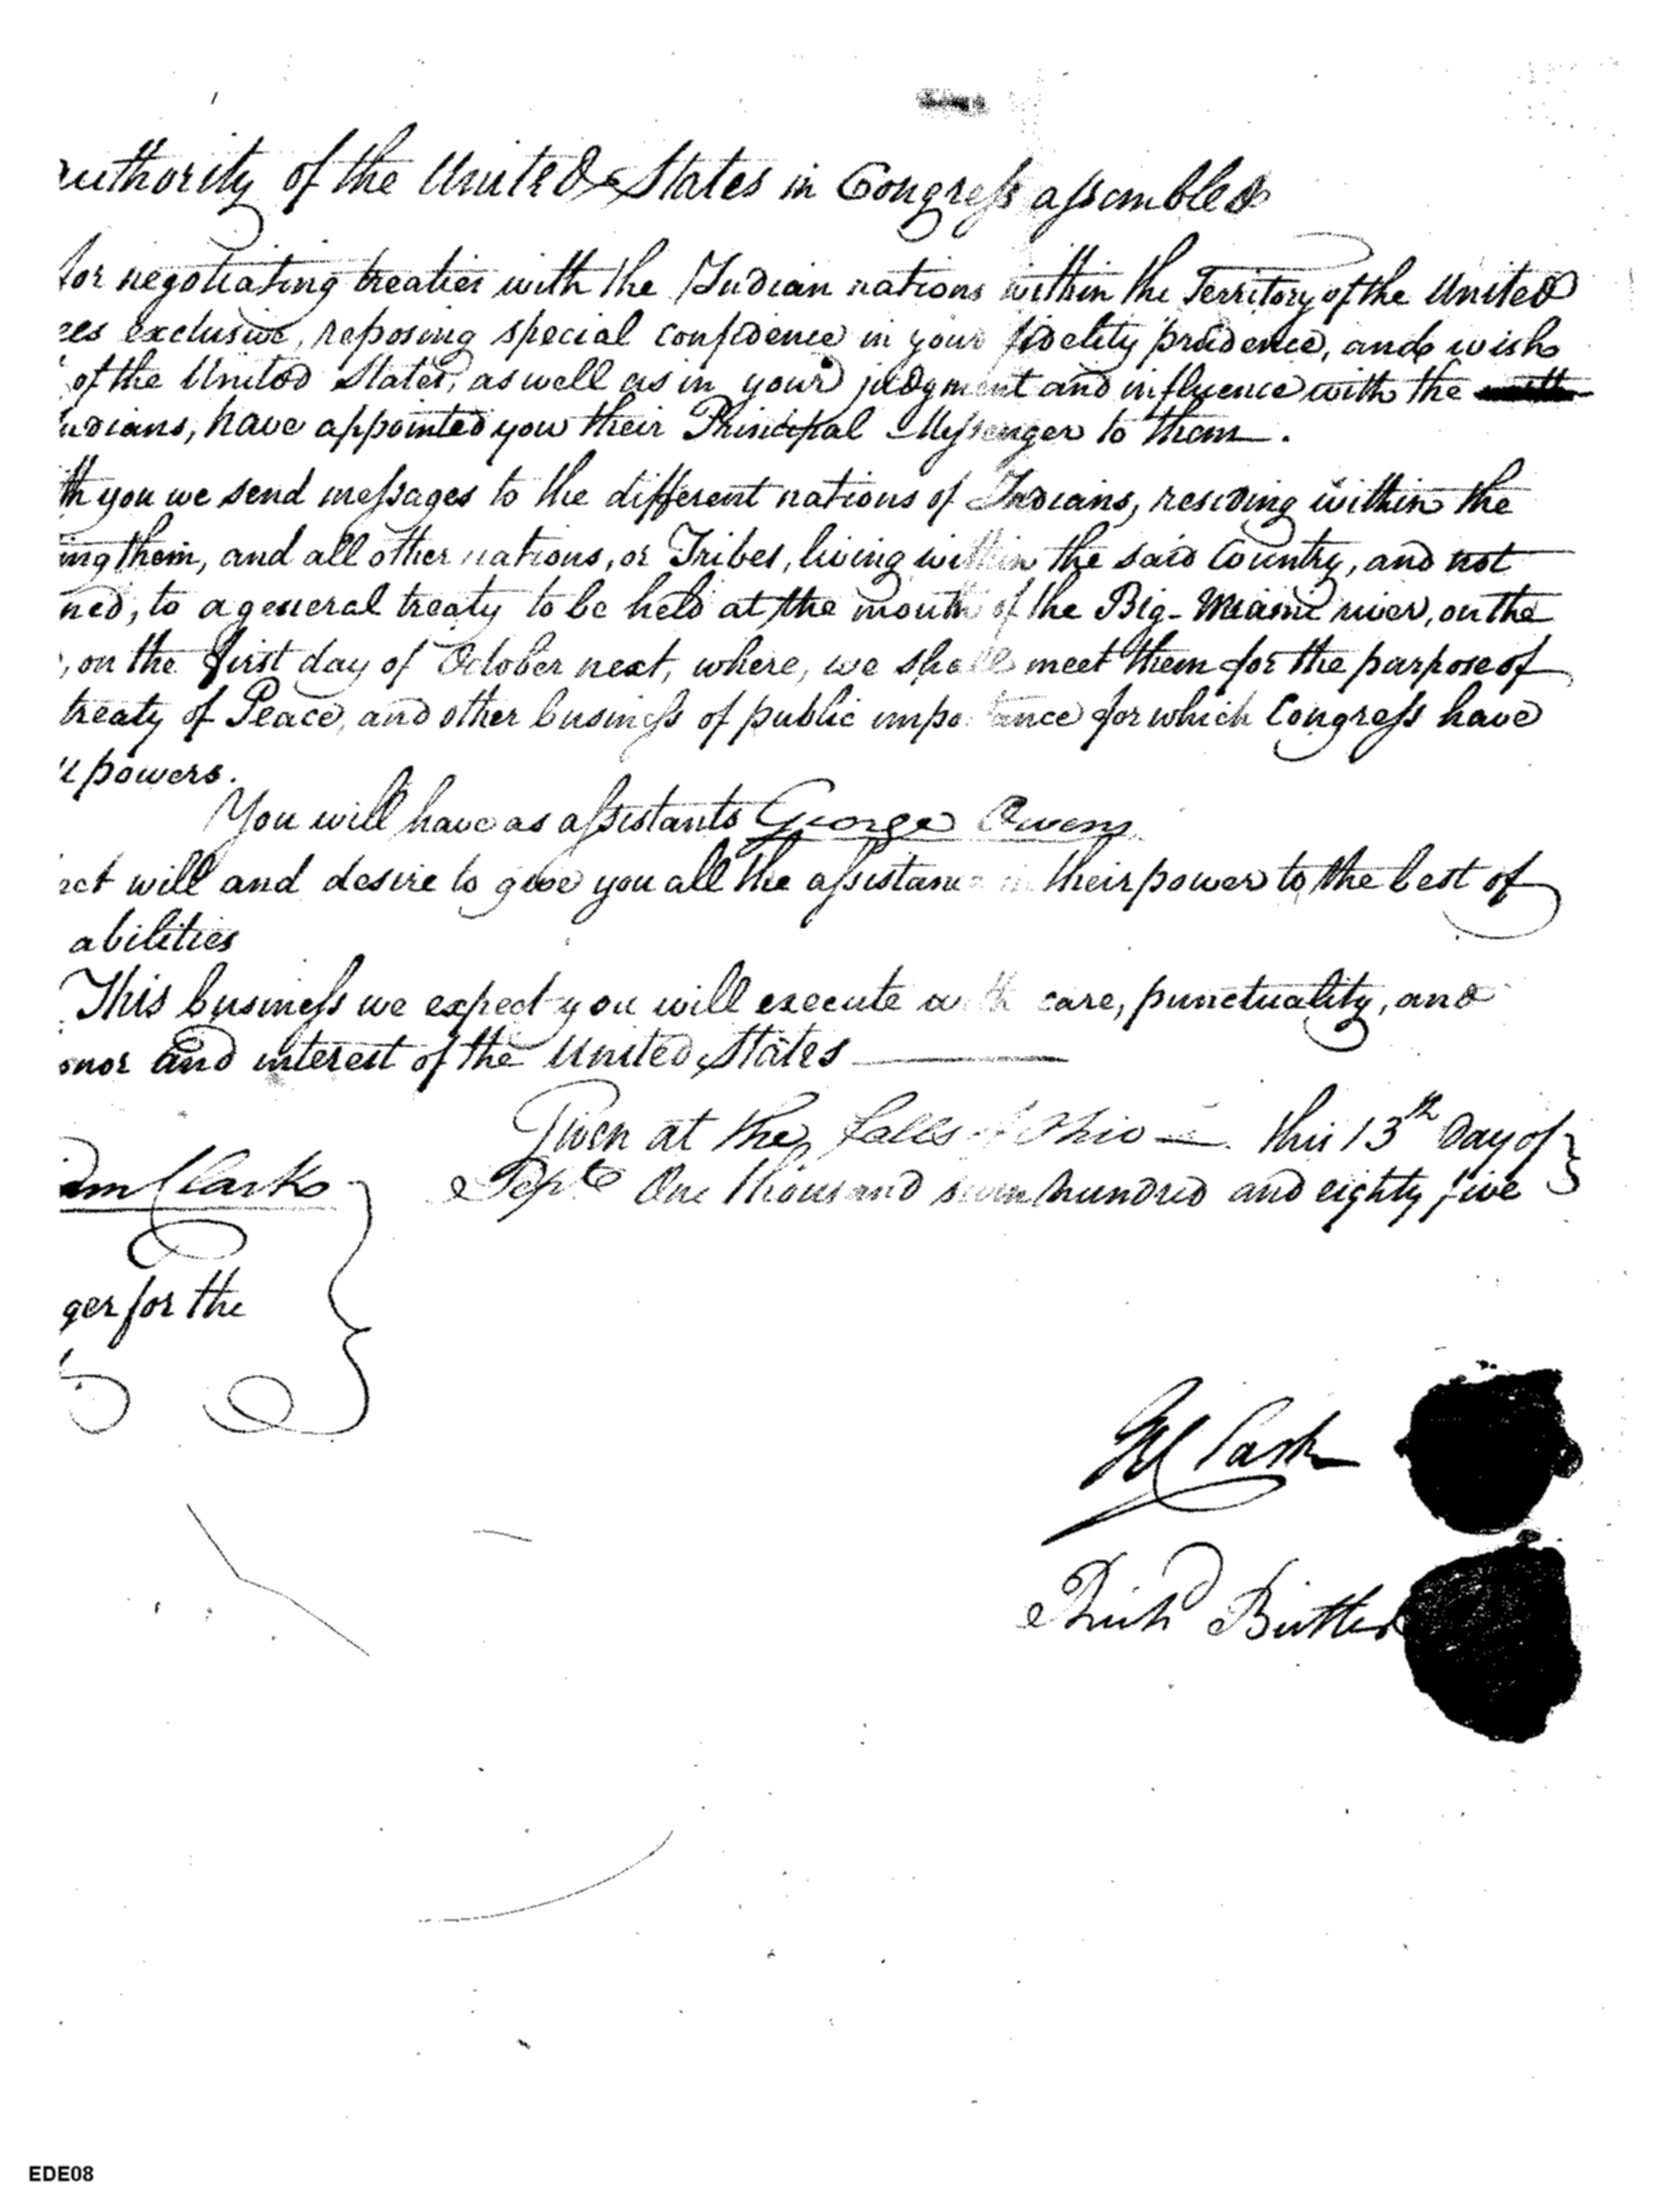 uthority of the United States in Congress assembled
for negotiating treaties with the Indian nations within the Territory of the United
es exclusive, reposing special confidence in your fidelity prudence, and wish
of the United States, as well as in your judgment and influence with the
ndians, have appointed you their Principal Messenger to them.
th you we send messages to the different nations of Indians, residing within the
ing them, and all other nations, or Tribes, living within the said Country, and not
ned, to a general treaty to be held at the mouth of the Big-Miami river, on the
, on the first day of October next, where, we shall meet them for the purpose of
treaty of Peace, and other business of public importance for which Congress have
powers.
You will have as assistants George Owens
ct will and desire to give you all the assistance in their power to the best of
abilities
This business we expect you will execute with care, punctuality, and
onor and interest of the United States
Given at the falls of Ohio this 13th Day of
Septe One thousand seven hundred and eighty five
am Clark
ger for the
GR Clark
Richd Butler
EDE08